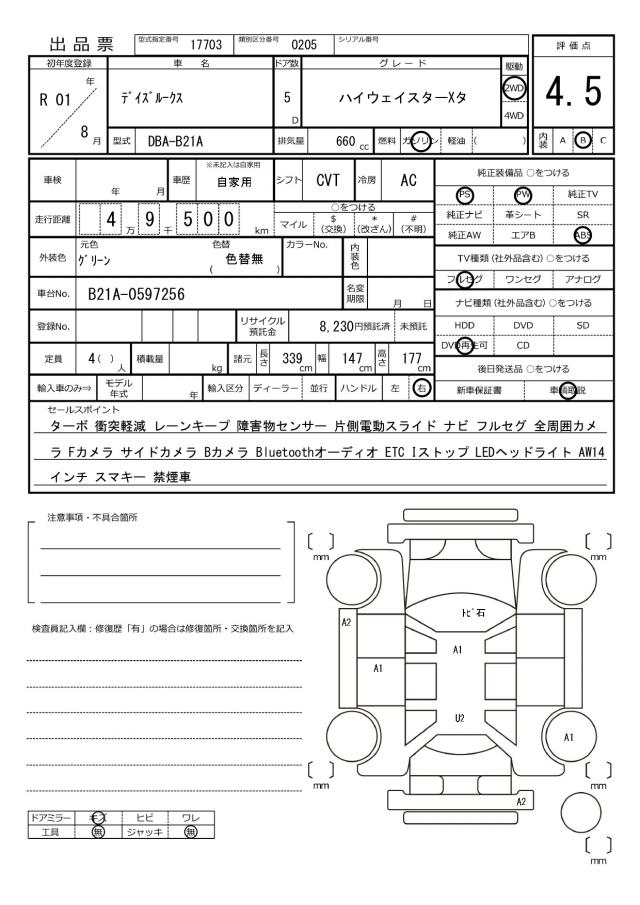 出品票 型式指定番号 17703 類別区分番号 0205 シリアル番号
評価点
4.5
内装 A B C
初年度登録 車名 ドア数 グレード 駆動
R 01 年 8 月
ﾃﾞｲｽﾞﾙｰｸｽ
5 D
ハイウェイスターXタ
2WD
4WD
型式 DBA-B21A 排気量 660 cc 燃料 ガソリン 軽油 ( )
車検 年 月 車歴 ※未記入は自家用 自家用 シフト CVT 冷房 AC
走行距離 4 万 9 千 5 0 0 km
○をつける
マイル $(交換) *(改ざん) #(不明)
外装色 元色 ｸﾞﾘｰﾝ 色替 ( 色替無 ) カラーNo. 内装色
車台No. B21A-0597256 名変期限 月 日
登録No. リサイクル預託金 8,230円預託済 未預託
定員 4( )人 積載量 kg 諸元 長さ 339 cm 幅 147 cm 高さ 177 cm
輸入車のみ⇒ モデル年式 年 輸入区分 ディーラー 並行 ハンドル 左 右
純正装備品 ○をつける
PS PW 純正TV
純正ナビ 革シート SR
純正AW エアB ABS
TV種類 (社外品含む) ○をつける
フルセグ ワンセグ アナログ
ナビ種類 (社外品含む) ○をつける
HDD DVD SD
DVD再生可 CD
後日発送品 ○をつける
新車保証書 車輌取説
セールスポイント
ターボ 衝突軽減 レーンキープ 障害物センサー 片側電動スライド ナビ フルセグ 全周囲カメ
ラ Fカメラ サイドカメラ Bカメラ Bluetoothオーディオ ETC Iストップ LEDヘッドライト AW14
インチ スマキー 禁煙車
注意事項・不具合箇所
検査員記入欄：修復歴「有」の場合は修復箇所・交換箇所を記入
ドアミラー キズ ヒビ ワレ
工具 無 ジャッキ 無
〔 〕mm
〔 〕mm
ﾄﾋﾞ石
A2
A1
A1
U2
A1
〔 〕mm
〔 〕mm
A2
〔 〕mm